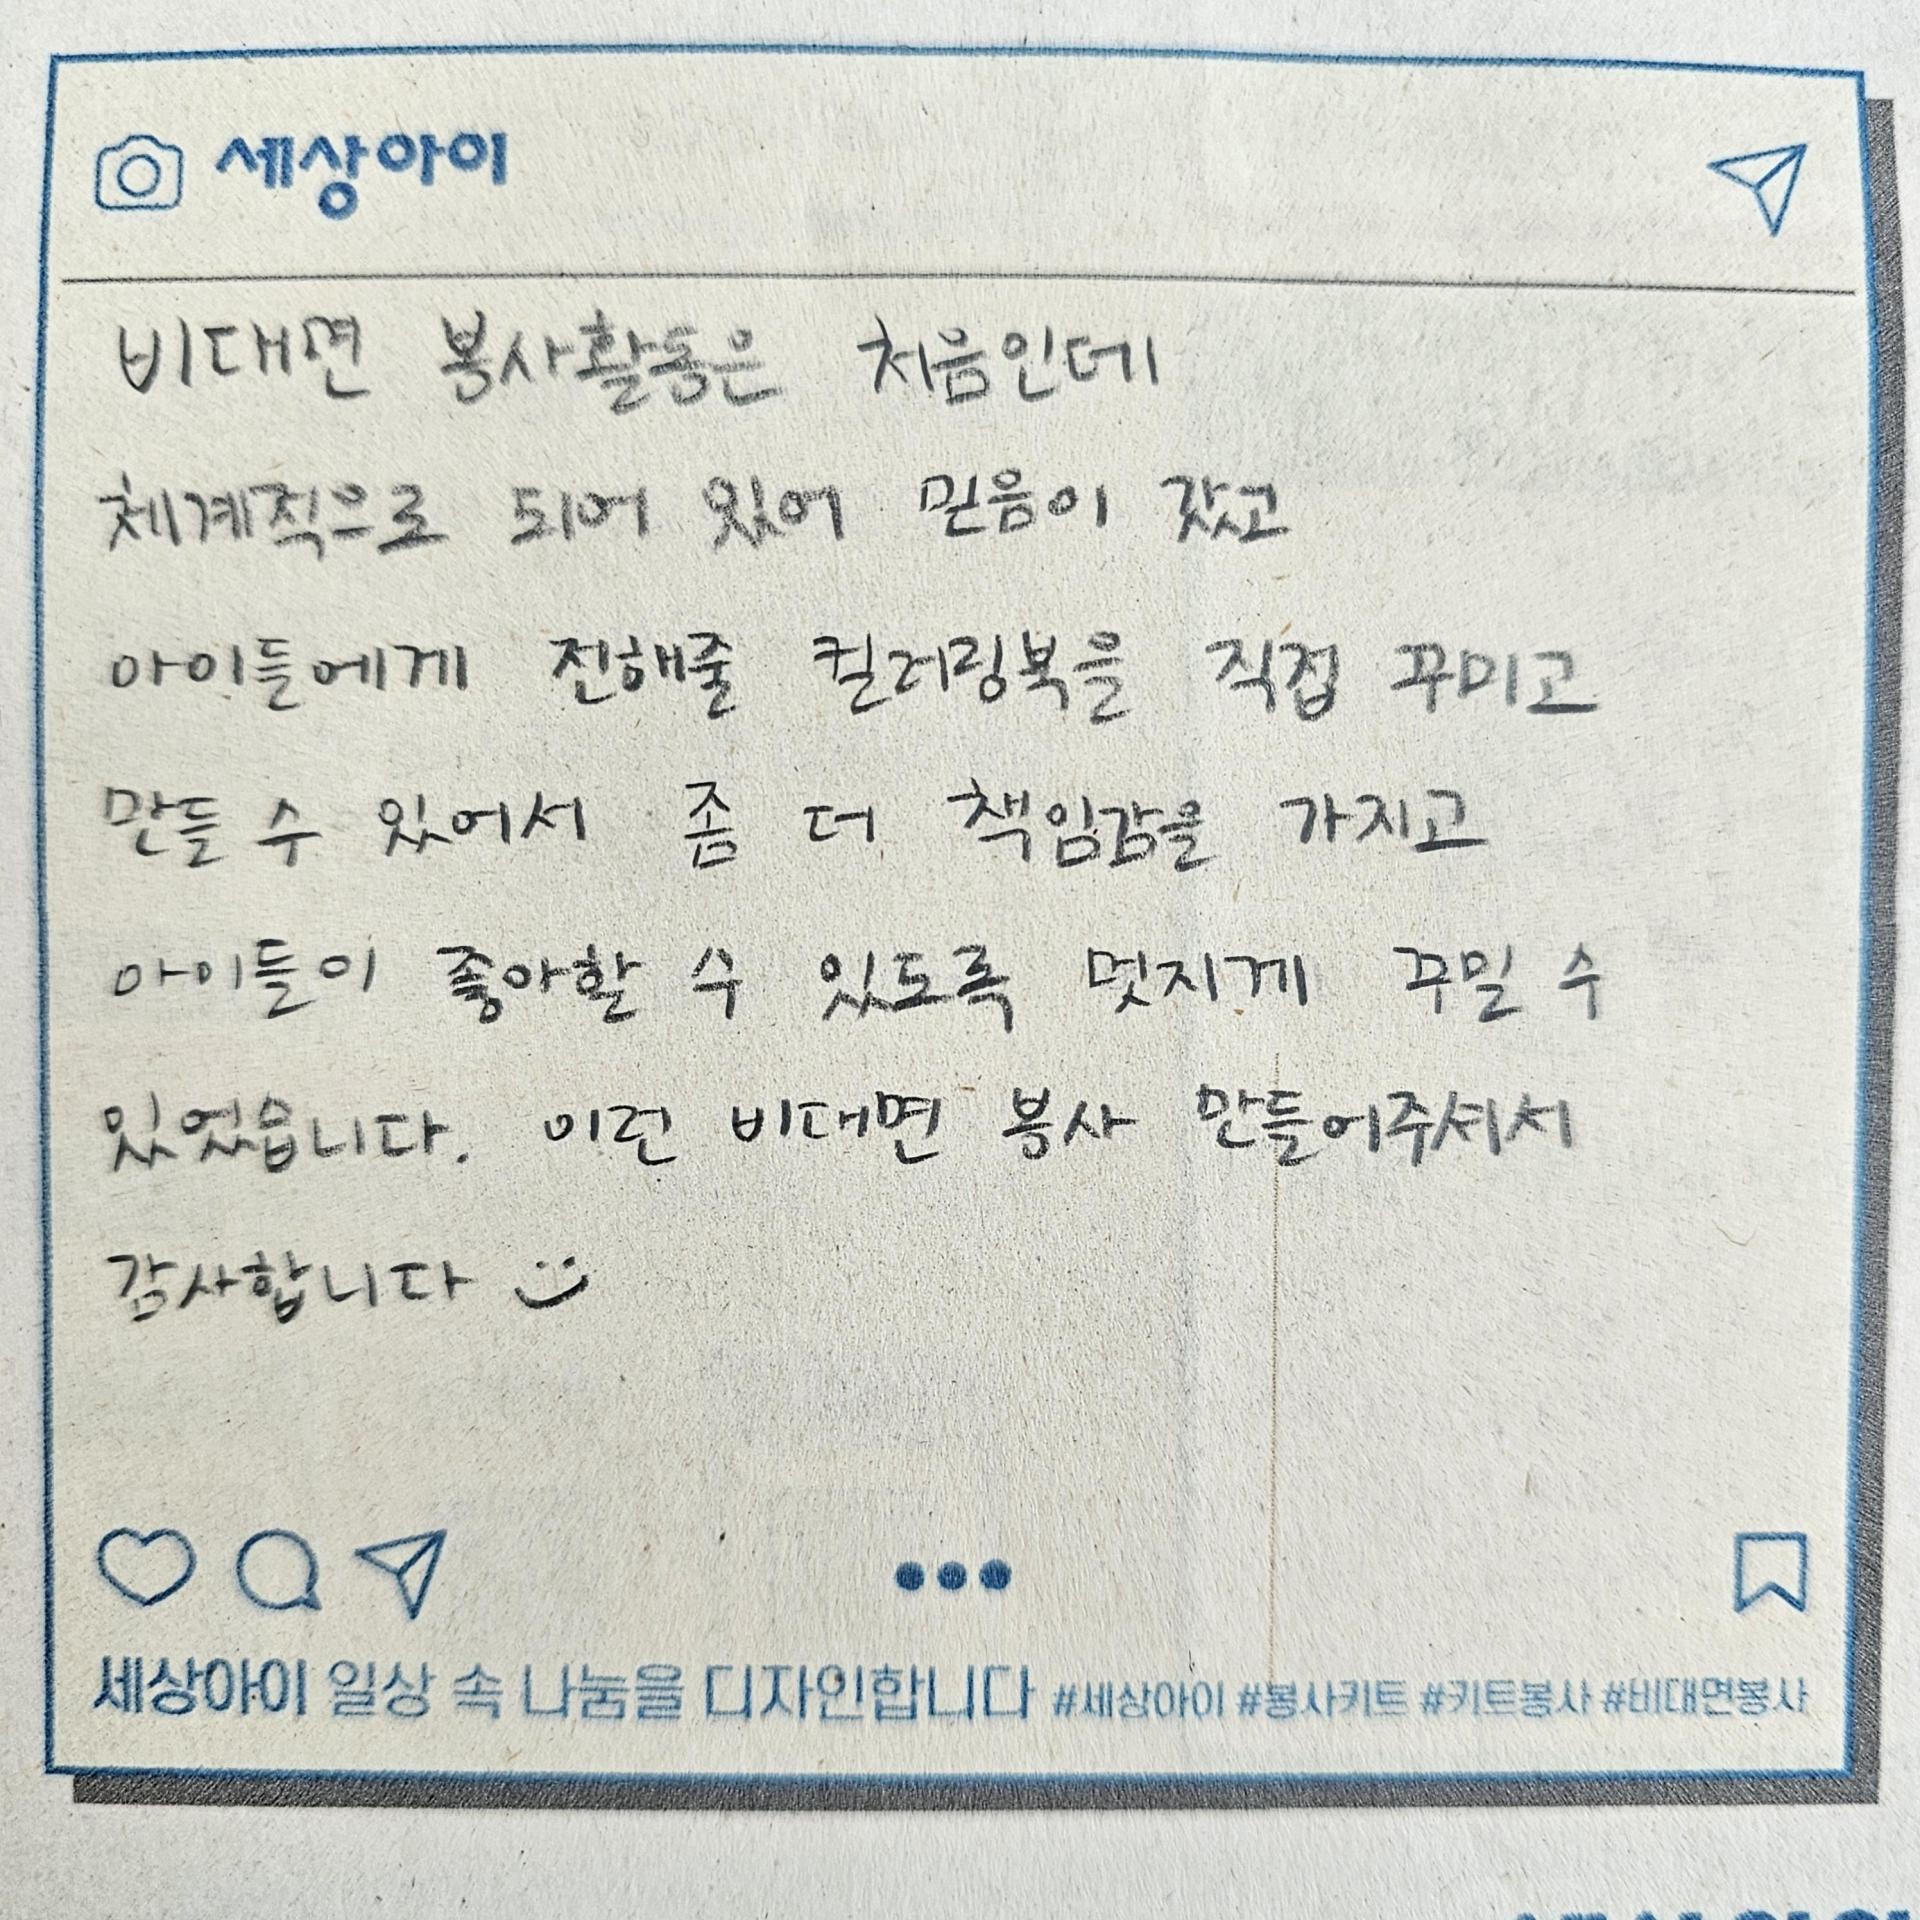 세상아이
비대면 봉사활동은 처음인데
체계적으로 되어 있어 믿음이 갔고
아이들에게 전해줄 컬러링북을 직접 꾸미고
만들 수 있어서 좀 더 책임감을 가지고
아이들이 좋아할 수 있도록 멋지게 꾸밀 수
있었습니다. 이런 비대면 봉사 만들어주셔서
감사합니다
세상아이 일상 속 나눔을 디자인합니다 #세상아이 #봉사키트 #키트봉사 #비대면봉사